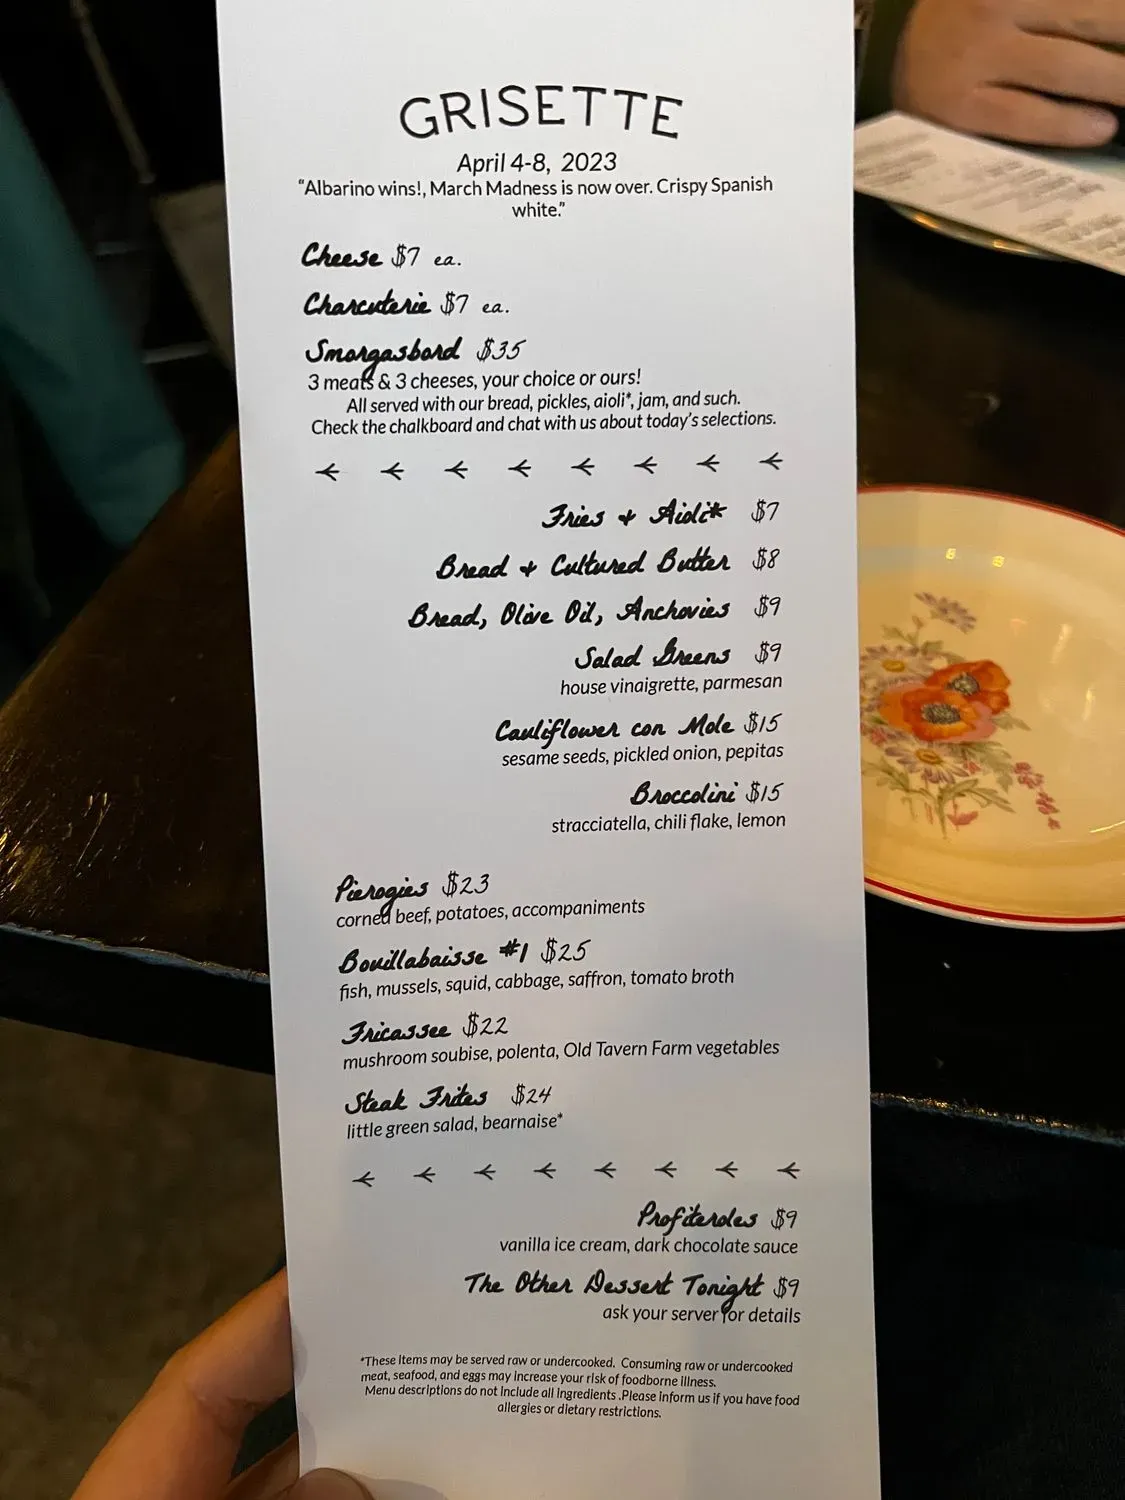 GRISETTE
April 4-8, 2023
"Albarino wins!, March Madness is now over. Crispy Spanish
white."
Cheese $7 ea.
Charcuterie $7 ea.
Smorgasbord $35
3 meats & 3 cheeses, your choice or ours!
All served with our bread, pickles, aioli*, jam, and such.
Check the chalkboard and chat with us about today's selections.
Fries + Aioli* $7
Bread + Cultured Butter $8
Bread, Olive Oil, Anchovies $9
Salad Greens $9
house vinaigrette, parmesan
Cauliflower con Mole $15
sesame seeds, pickled onion, pepitas
Broccolini $15
stracciatella, chili flake, lemon
Pierogies $23
corned beef, potatoes, accompaniments
Bouillabaisse #1 $25
fish, mussels, squid, cabbage, saffron, tomato broth
Fricassee $22
mushroom soubise, polenta, Old Tavern Farm vegetables
Steak Frites $24
little green salad, bearnaise*
Profiteroles $9
vanilla ice cream, dark chocolate sauce
The Other Dessert Tonight $9
ask your server for details
*These items may be served raw or undercooked. Consuming raw or undercooked
meat, seafood, and eggs may increase your risk of foodborne illness.
Menu descriptions do not include all ingredients .Please inform us if you have food
allergies or dietary restrictions.